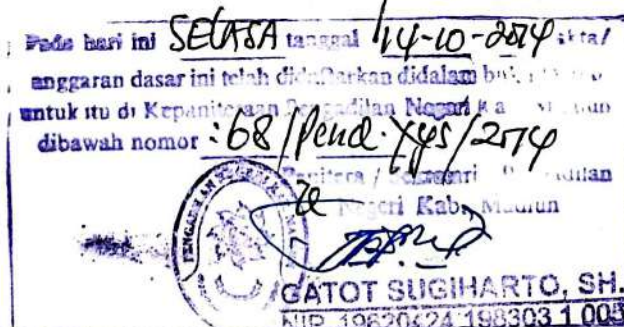 Pada hari ini SELASA tanggal 14-10-2014 akta/
anggaran dasar ini telah didaftarkan didalam
untuk itu di Kepaniteraan Pengadilan Negeri
dibawah nomor : 68/Pend.YYS/2014
Panitera / Sekretaris Pengadilan
Negeri Kab. Madiun
GATOT SUGIHARTO, SH.
NIP. 19620424 198303 1 005